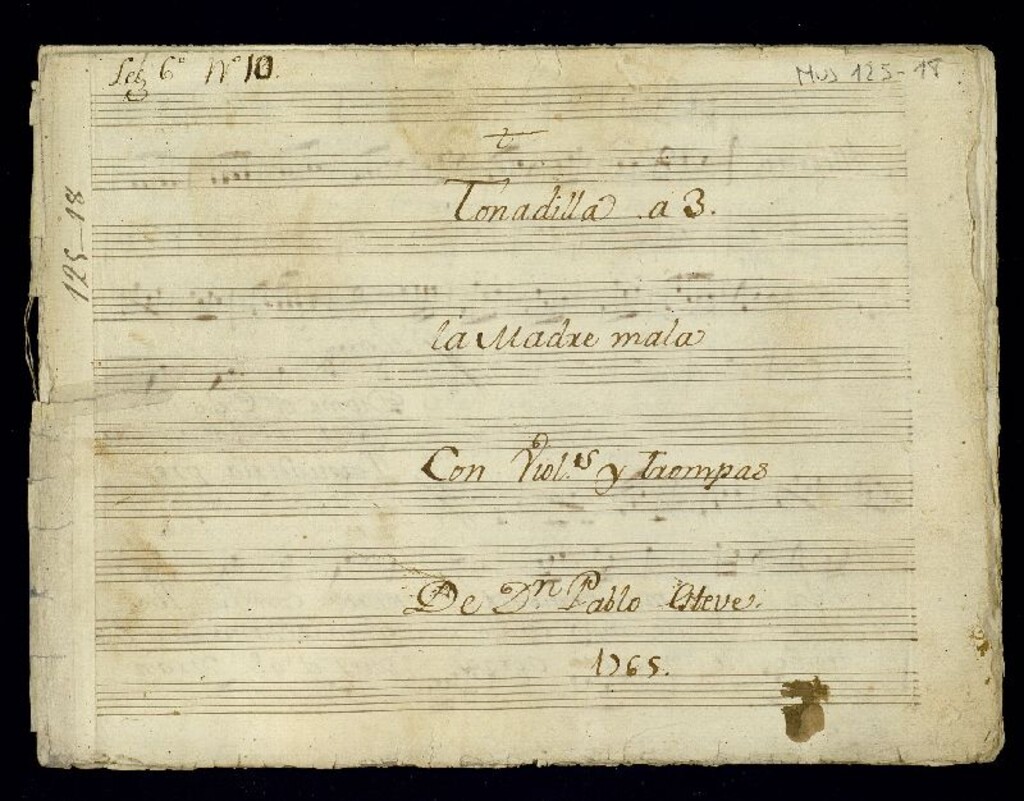 Leg 6º Nº 10.
MUS 125-18
125-18
t
Tonadilla a 3.
la Madre mala
Con Viol.es y Trompas
De Dn Pablo Esteve.
1765.